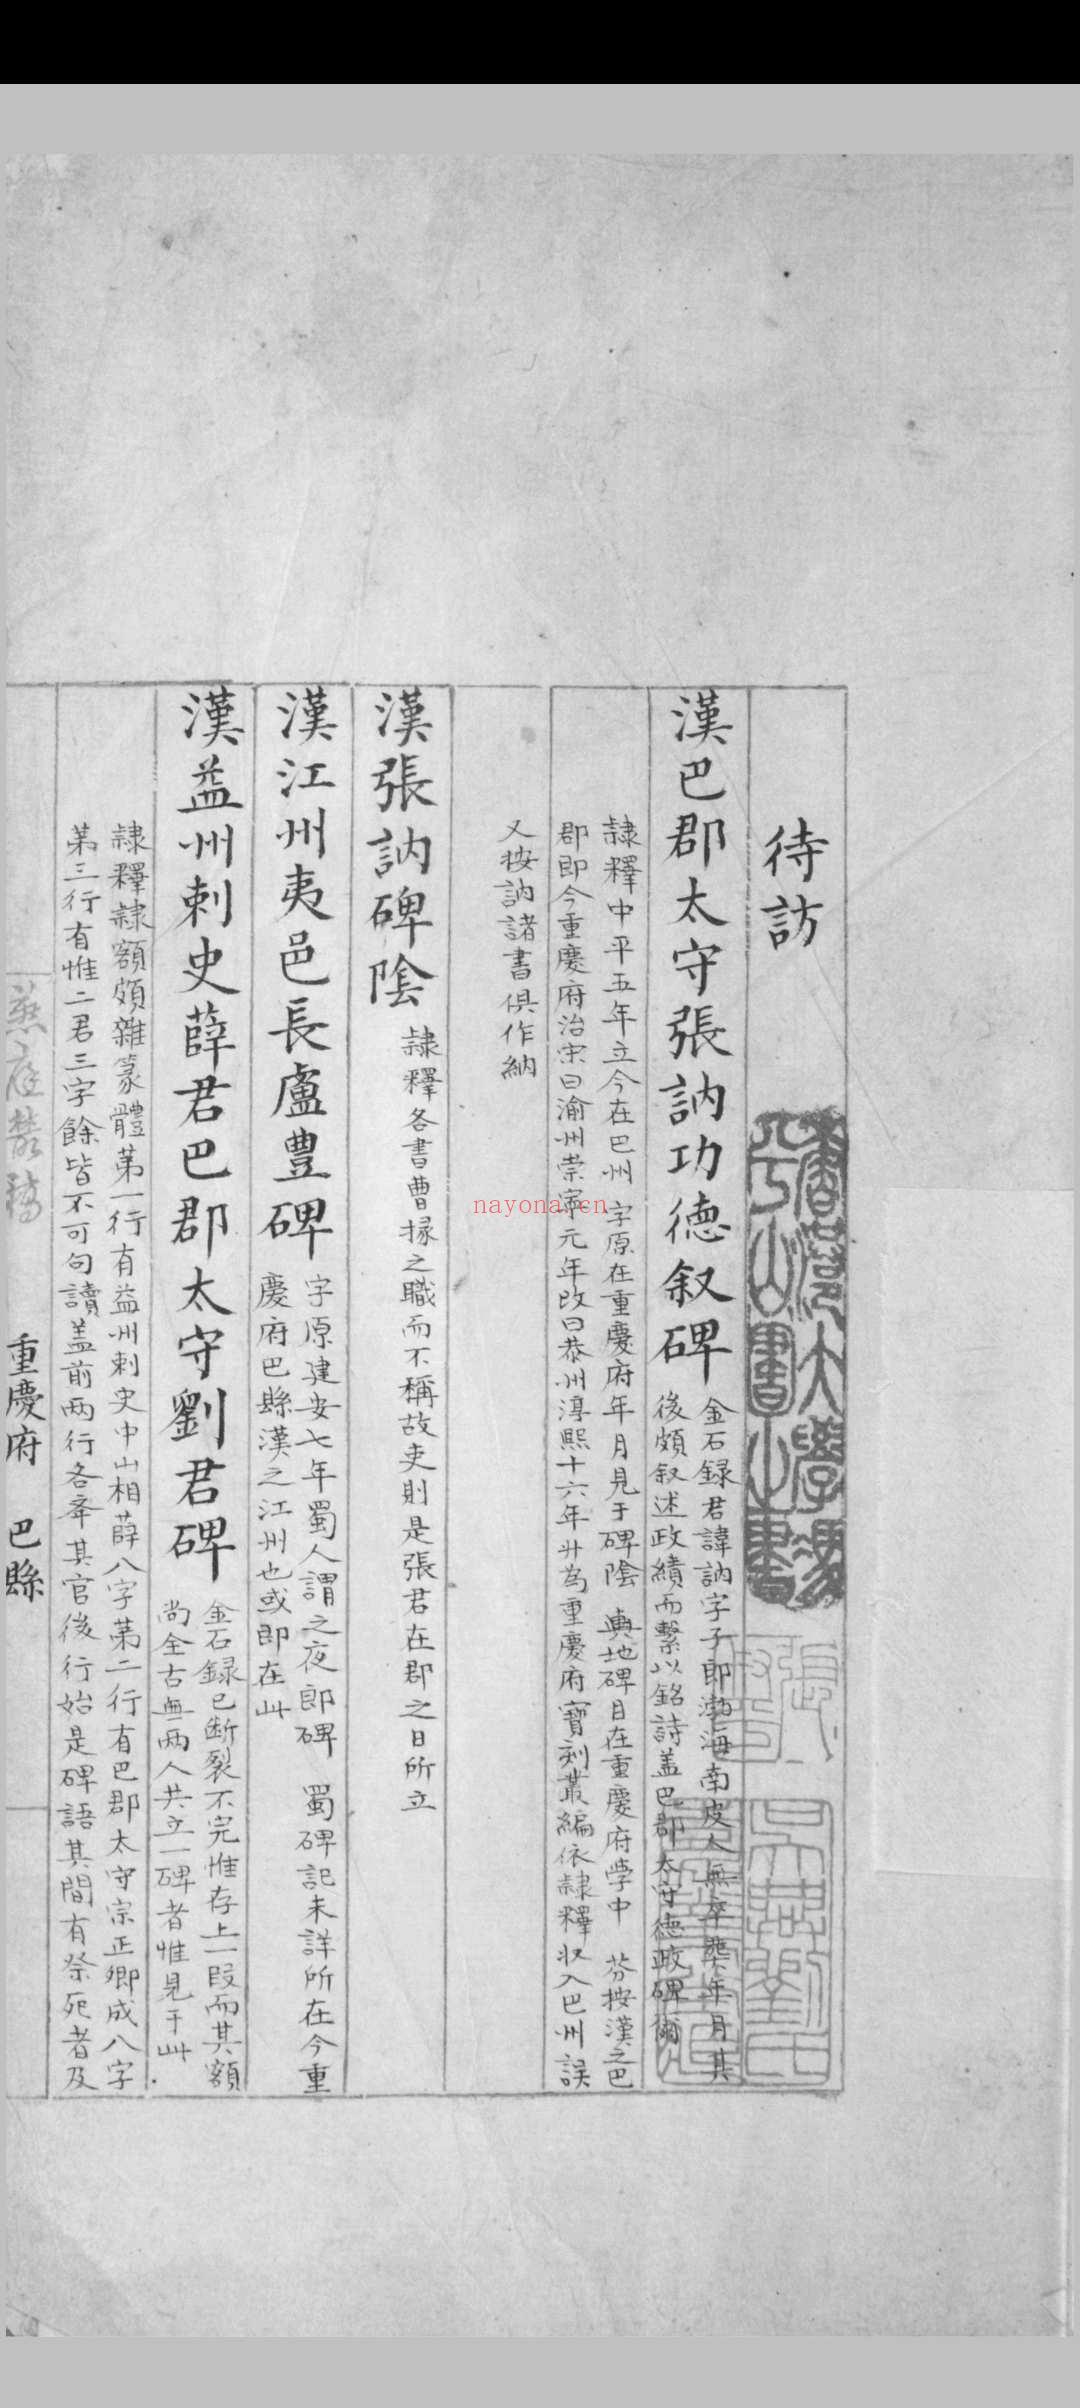 待訪
漢巴郡太守張訥功德叙碑
金石録君諱訥字子郎渤海南皮人無卒葬年月其
後頗叙述政績而繫以銘詩盖巴郡太守德政碑爾
隷釋中平五年立今在巴州 字原在重慶府年月見于碑陰 輿地碑目在重慶府學中 芬按漢之巴
郡即今重慶府治宋曰渝州崇寧元年改曰恭州淳熙十六年升為重慶府寶刻叢編依隷釋収入巴州誤
又按訥諸書俱作納
漢張訥碑陰
隷釋各書曹掾之職而不稱故吏則是張君在郡之日所立
漢江州夷邑長盧豊碑
字原建安七年蜀人謂之夜郎碑 蜀碑記未詳所在今重
慶府巴縣漢之江州也或即在此
漢益州刺史薛君巴郡太守劉君碑
金石録已断裂不完惟存上一段而其額
尚全古無兩人共立一碑者惟見于此
隷釋隷額頗雜篆體第一行有益州刺史中山相薛八字第二行有巴郡太守宗正卿成八字
第三行有惟二君三字餘皆不可句讀盖前兩行各牽其官後行始是碑語其間有祭死者及
重慶府 巴縣
nayona.cn